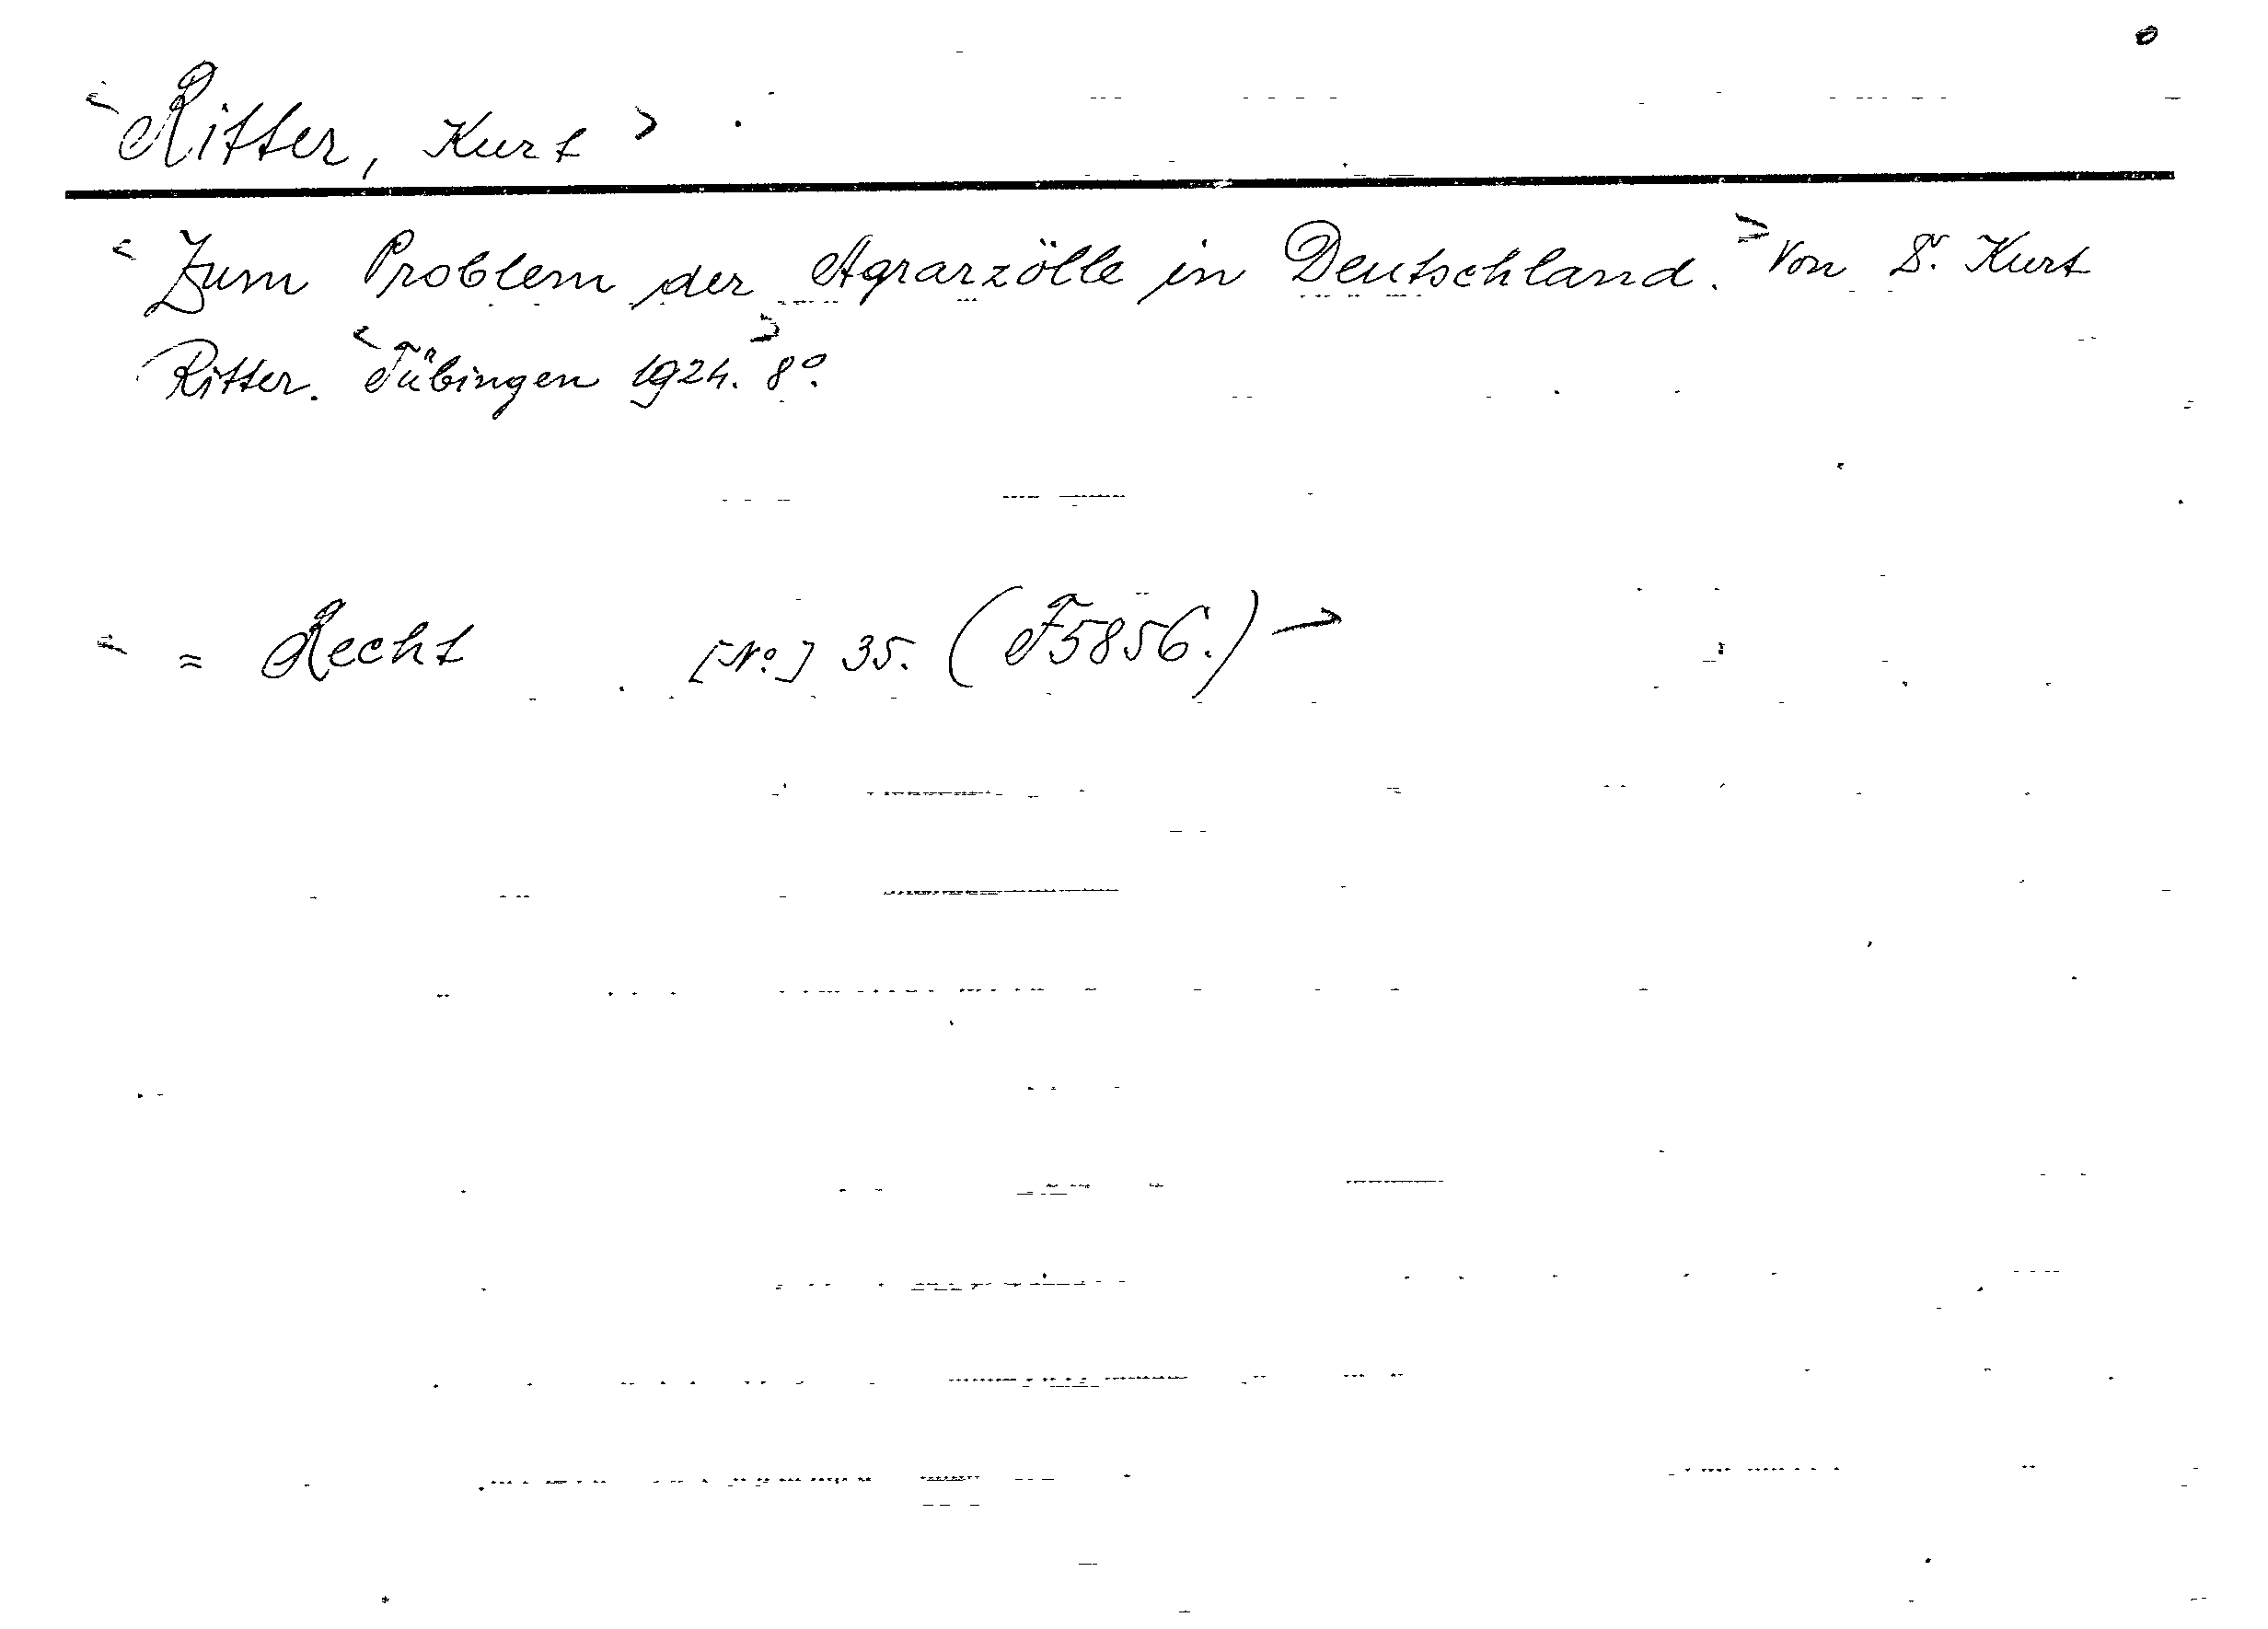 <Ritter, Kurt>.
<Zum Problem der Agrarzölle in Deutschland.> Von Dr. Kurt
Ritter. <Tübingen 1924.> 8°.
<= Recht [No.] 35. (F5856.)>